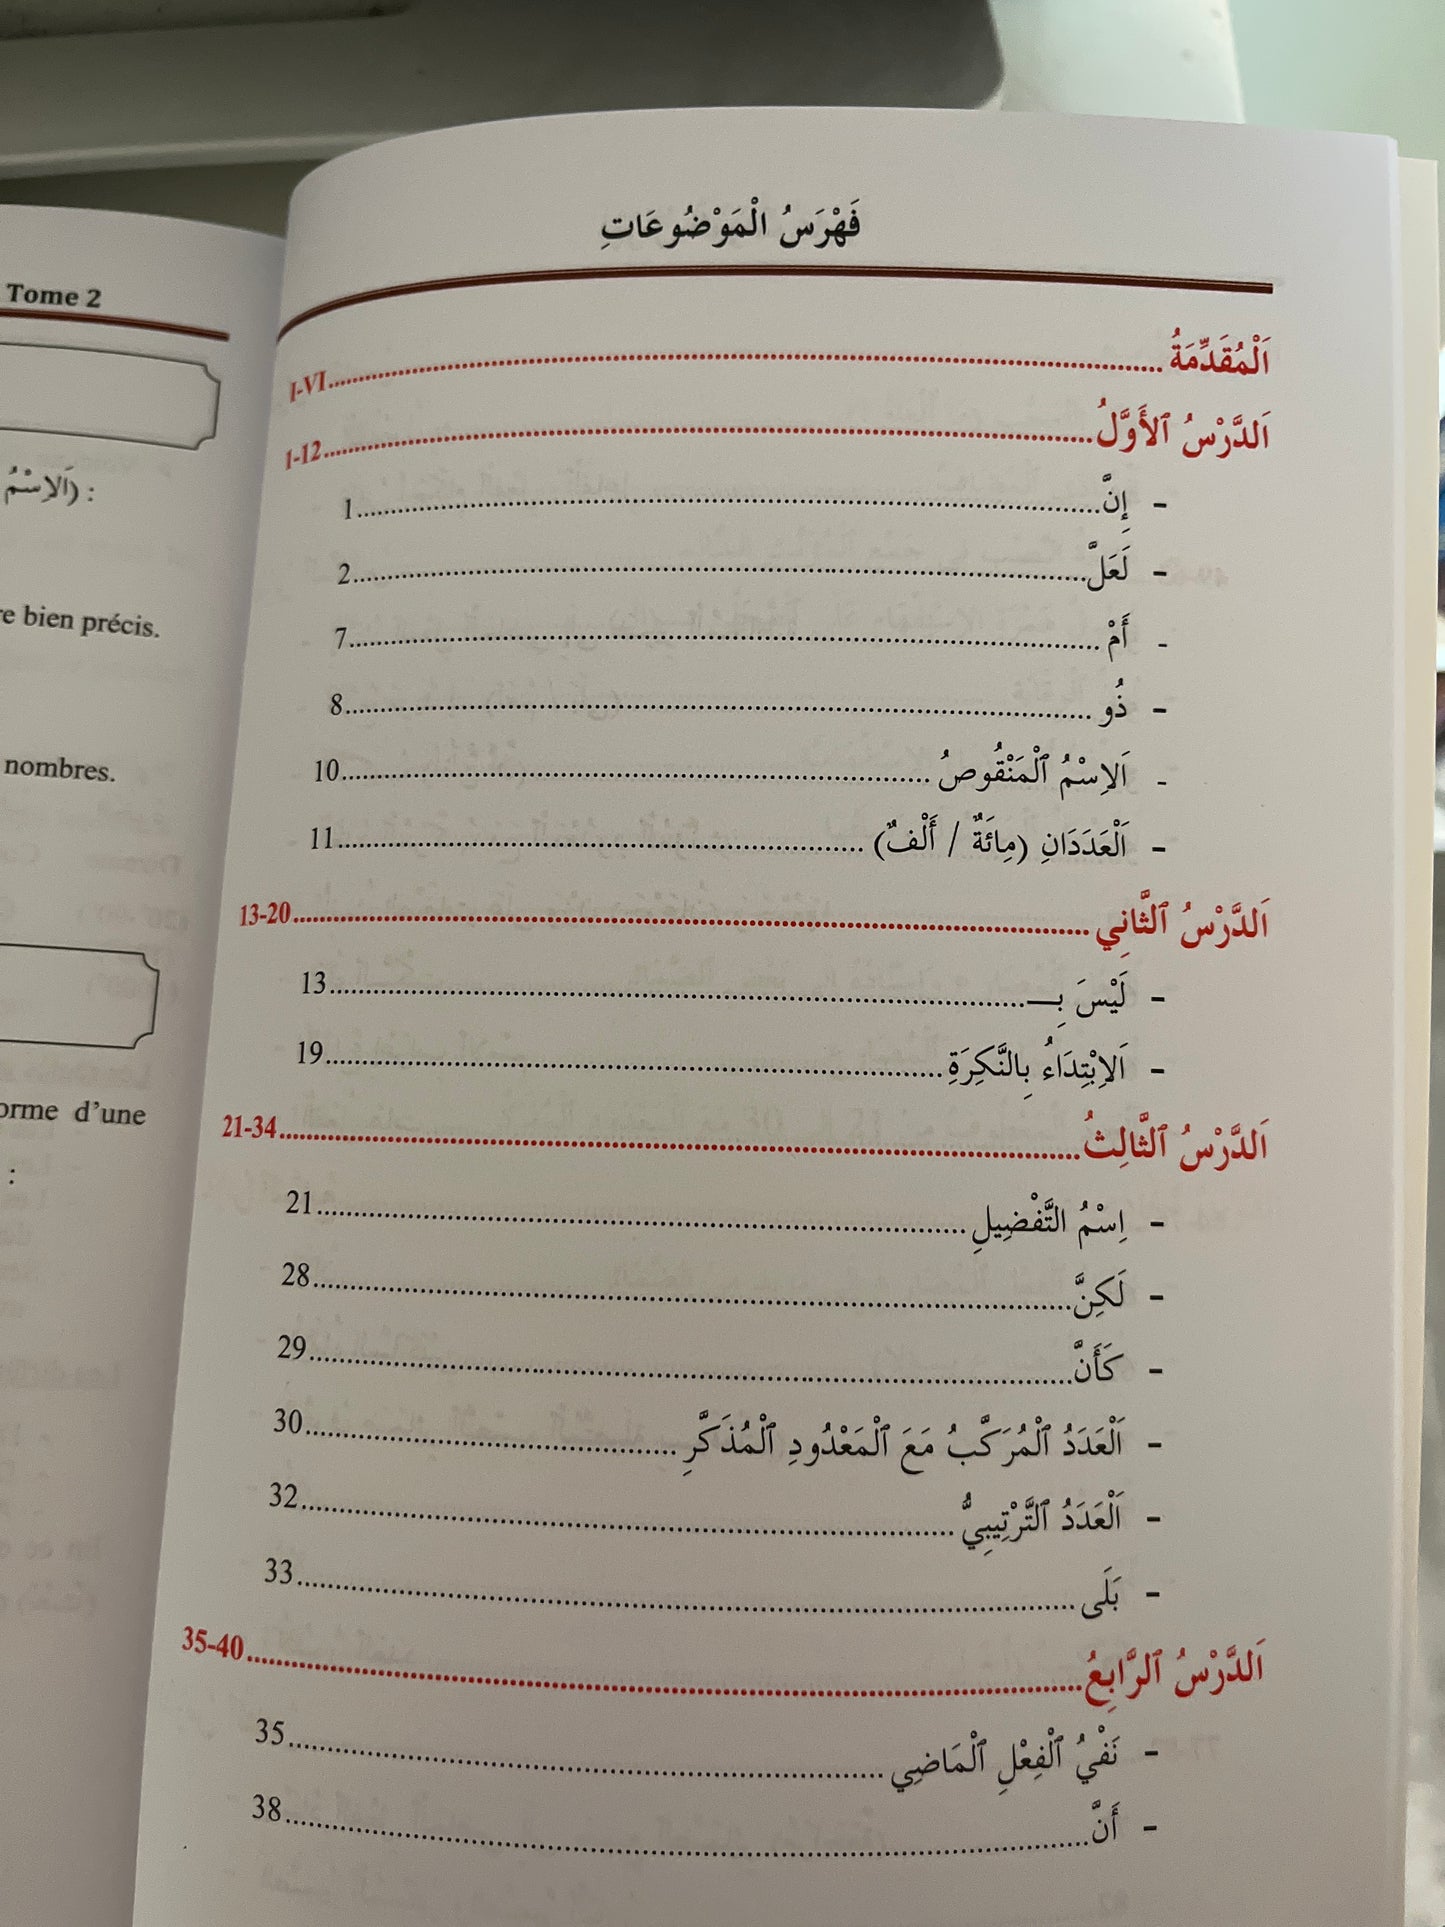 Tome 2
: (اَلاِسْمُ
re bien précis.
nombres.
orme d’une
:
فَهْرَسُ الْمَوْضُوعَاتِ
اَلْمُقَدِّمَةُ......I-VI
اَلدَّرْسُ ٱلأَوَّلُ......1-12
- إِنَّ......1
- لَعَلَّ......2
- أَمْ......7
- ذُو......8
- اَلاِسْمُ ٱلْمَنْقُوصُ......10
- اَلْعَدَدَانِ (مِائَةٌ / أَلْفٌ)......11
اَلدَّرْسُ ٱلثَّانِي......13-20
- لَيْسَ بِـ......13
- اَلاِبْتِدَاءُ بِالنَّكِرَةِ......19
اَلدَّرْسُ ٱلثَّالِثُ......21-34
- اِسْمُ التَّفْضِيلِ......21
- لَكِنَّ......28
- كَأَنَّ......29
- اَلْعَدَدُ ٱلْمُرَكَّبُ مَعَ ٱلْمَعْدُودِ ٱلْمُذَكَّرِ......30
- اَلْعَدَدُ ٱلتَّرْتِيبِيُّ......32
- بَلَى......33
اَلدَّرْسُ ٱلرَّابِعُ......35-40
- نَفْيُ ٱلْفِعْلِ ٱلْمَاضِي......35
- أَنَّ......38